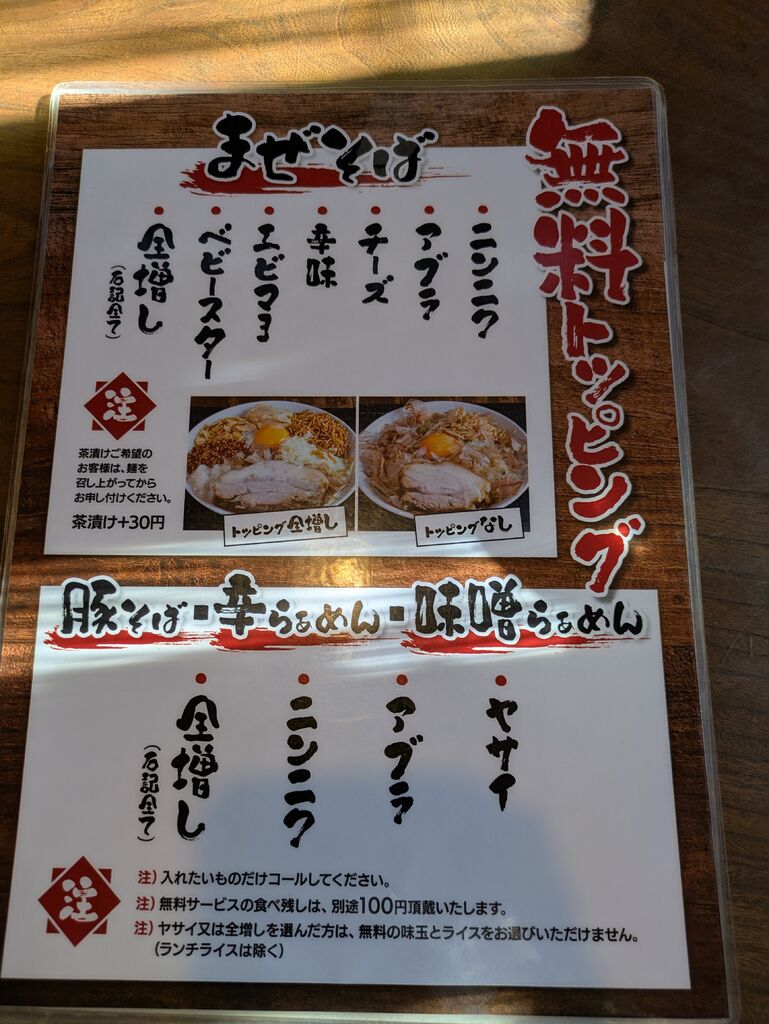 無料トッピング
まぜそば
・ニンニク
・アブラ
・チーズ
・辛味
・エビマヨ
・ベビースター
・全増し
(右記全て)
注
茶漬けご希望の
お客様は、麺を
召し上がってから
お申し付けください。
茶漬け+30円
トッピング全増し
トッピングなし
豚そば・辛らぁめん・味噌らぁめん
・ヤサイ
・アブラ
・ニンニク
・全増し
(右記全て)
注
注)入れたいものだけコールしてください。
注)無料サービスの食べ残しは、別途100円頂戴いたします。
注)ヤサイ又は全増しを選んだ方は、無料の味玉とライスをお選びいただけません。
(ランチライスは除く)